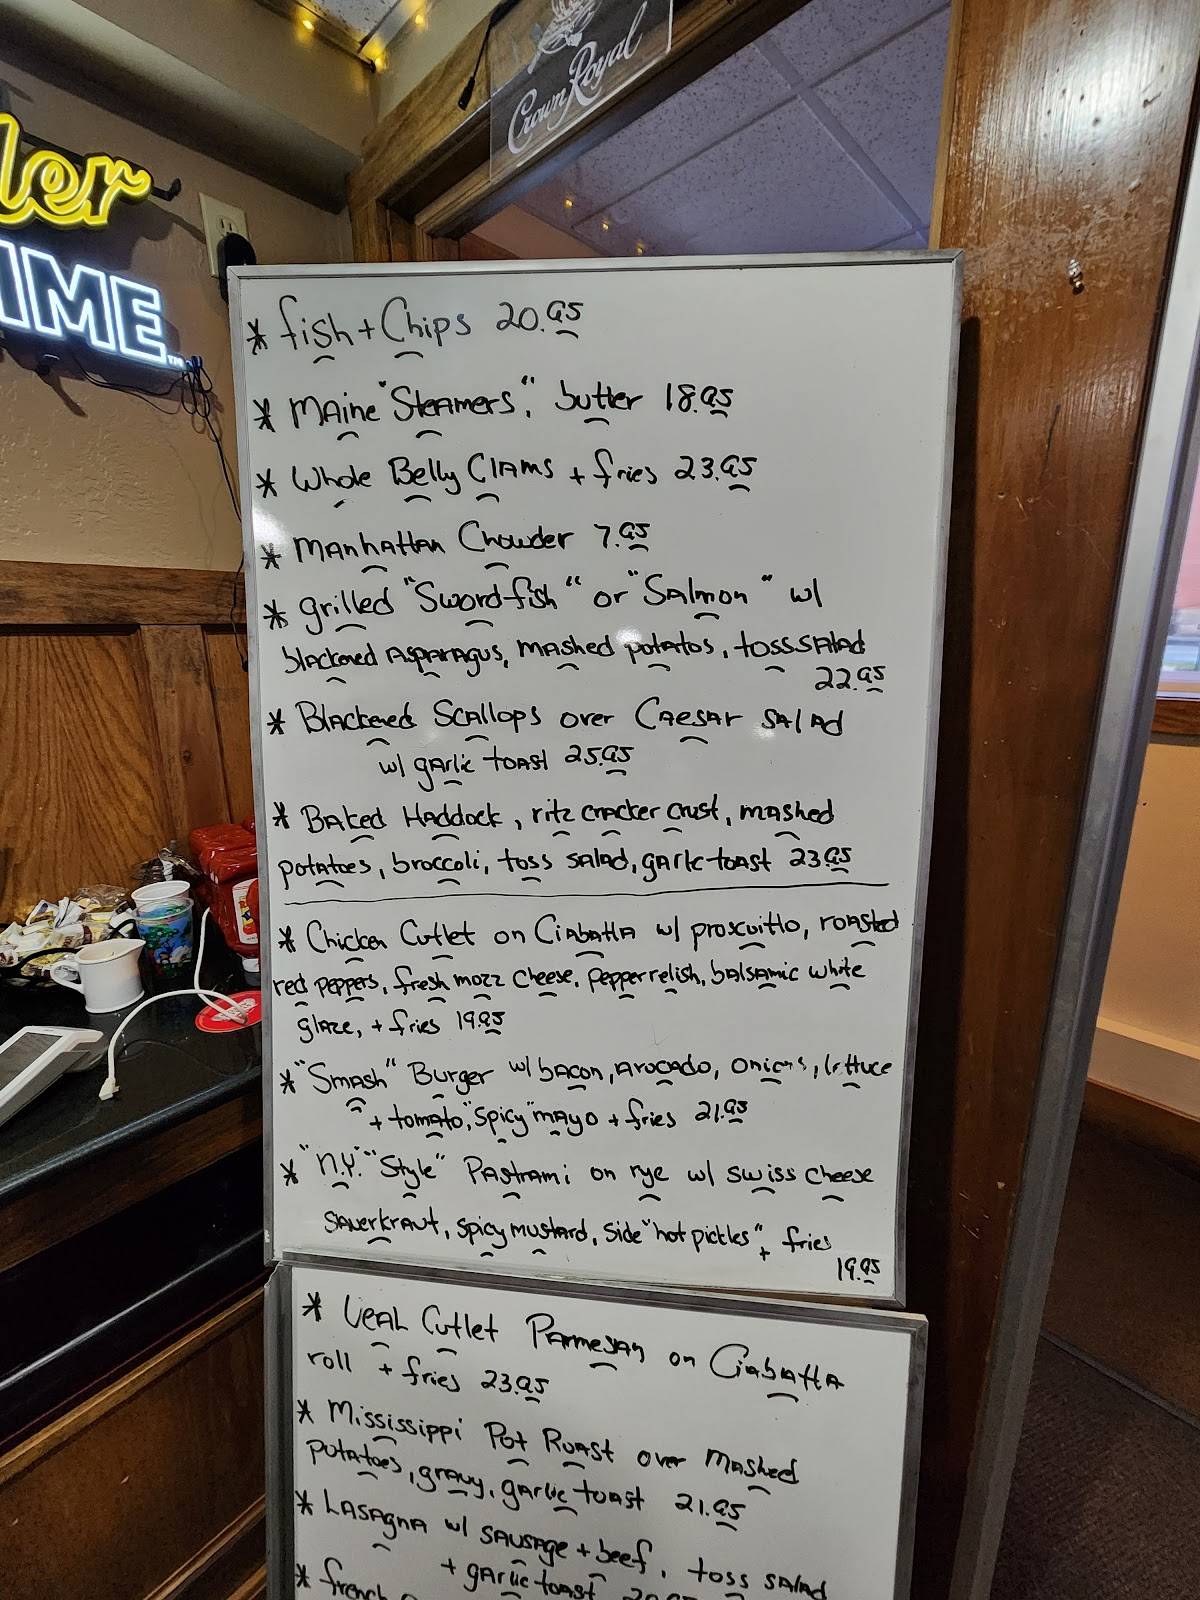 Crown Royal
ler
IME
* fish + Chips 20.95
* Maine "Steamers", butter 18.95
* Whole Belly Clams + fries 23.95
* Manhattan Chowder 7.95
* grilled "Swordfish" or "Salmon" w/
blackened asparagus, mashed potatos, toss salad
22.95
* Blackened Scallops over Caesar salad
w/ garlic toast 25.95
* Baked Haddock, ritz cracker crust, mashed
potatoes, broccoli, toss salad, garlic toast 23.95
* Chicken Cutlet on Ciabatta w/ proscuitto, roasted
red peppers, fresh mozz cheese, pepper relish, balsamic white
glaze, + fries 19.95
* "Smash" Burger w/ bacon, avocado, onions, lettuce
+ tomato, "spicy" mayo + fries 21.95
* "N.Y." "Style" Pastrami on rye w/ swiss cheese
sauerkraut, spicy mustard, side "hot pickles" + fries
19.95
* Veal Cutlet Parmesan on Ciabatta
roll + fries 23.95
* Mississippi Pot Roast over Mashed
potatoes, gravy, garlic toast 21.95
* Lasagna w/ sausage + beef, toss salad
+ garlic toast
* french